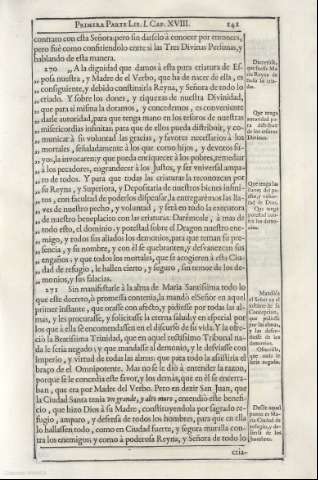 PRIMERA PARTE LIB. I. CAP. XVIII. 141
contrato con esta Señora; pero sin darselo à conocer por entonces,
pero fuè como confiriendolo entre si las Tres Divinas Personas, y
hablando de esta manera.
270 „A la dignidad que damos à esta pura criatura de Es-
posa nuestra, y Madre de el Verbo, que ha de nacer de ella, es
consiguiente, y debido constituirla Reyna, y Señora de todo lo
criado. Y sobre los dones, y riquezas de nuestra Divinidad,
que para si misma la doramos, y concedemos, es conveniente
darle autoridad, para que tenga mano en los tesoros de nuestras
misericordias infinitas, para que de ellos pueda distribuir, y co-
municar à su voluntad las gracias, y favores necessarios à los
mortales, señaladamente à los que como hijos, y devotos su-
yos, la invocaren; y que pueda enriquecer à los pobres, remediar
à los pecadores, engrandecer à los Justos, y ser universal ampa-
ro de todos. Y para que todas las criaturas la reconozcan por
su Reyna, y Superiora, y Depositaria de nuestros bienes infini-
tos, con facultad de poderlos dispensar, la entregarèmos las lla-
ves de nuestro pecho, y voluntad, y serà en todo la executora
de nuestro beneplacito con las criaturas. Darèmosle, à mas de
todo esto, el dominio, y potestad sobre el Dragon nuestro ene-
migo, y todos sus aliados los demonios, para que teman su pre-
sencia, y su nombre, y con èl se quebranten, y desvanezcan sus
engaños: y que todos los mortales, que se acogieren à esta Ciu-
dad de refugio, le hallen cierto, y seguro, sin temor de los de-
monios, y sus falacias.
271 Sin manifestarle à la alma de Maria Santissima todo lo
que este decreto, ò promessa contenia, la mandò el Señor en aquel
primer instante, que orasse con afecto, y pidiesse por todas las al-
mas, y les procurasse, y solicitasse la eterna salud, y en especial por
los que à ella se encomendassen en el discurso de su vida. Y la ofre-
ciò la Beatissima Trinidad, que en aquel rectissimo Tribunal na-
da le seria negado; y que mandasse al demonio, y le desviasse con
imperio, y virtud de todas las almas: que para todo la assistiria el
brazo de el Omnipotente. Mas no se le diò à entender la razon,
porque se le concedia este favor, y los demàs, que en èl se encerra-
ban, que era por Madre del Verbo. Pero en dezir San Juan, que
la Ciudad Santa tenia un grande, y alto muro, entendiò este benefi-
cio, que hizo Dios à su Madre, constituyendola por sagrado re-
fugio, amparo, y defensa de todos los hombres, para que en ella
lo hallassen todo, como en Ciudad fuerte, y segura muralla con-
tra los enemigos: y como à poderosa Reyna, y Señora de todo lo
cria-
Que tenga
autoridad pa-
ra distribuir
de los tesoros
Divinos.
Que tenga las
llaves del pe-
cho, y volun-
tad de Dios.
Que tenga
potestad con-
tra los demo-
nios.
Mandòla
el Señor en el
instante de la
Concepcion,
que pidiesse
por las almas,